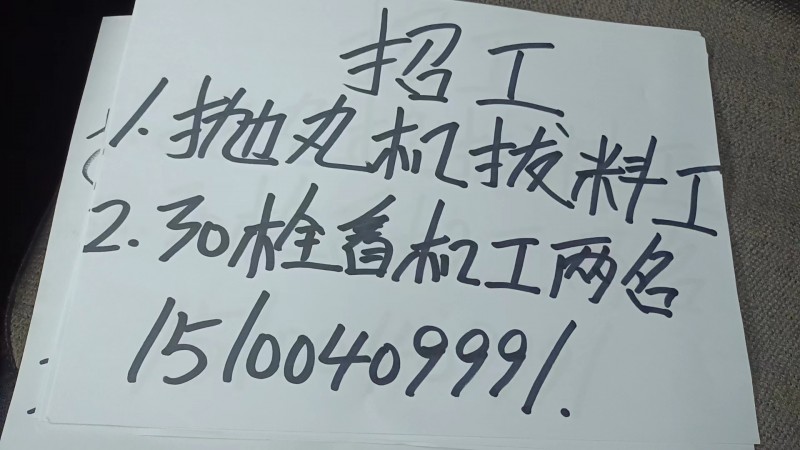 招工
1.抛丸机拔料工
2.30栓看机工两名
15100409991.